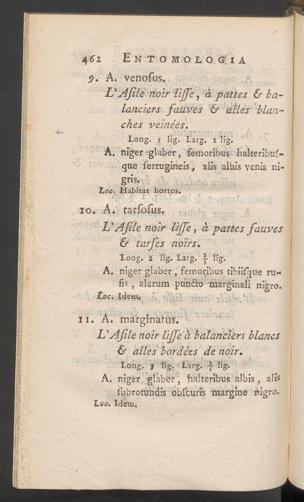 462 ENTOMOLOGIA
9. A. venosus.
L'Asile noir lisse, à pattes & ba-
lanciers fauves & aîles blan-
ches veinées.
Long. 5 lig. Larg. 1 lig.
A. niger glaber, femoribus halteribus-
que ferrugineis, alis albis venis ni-
gris.
Loc. Habitat hortos.
10. A. tarsosus.
L'Asile noir lisse, à pattes fauves
& tarses noirs.
Long. 2 lig. Larg. lig.
A. niger glaber, femoribus tibiisque ru-
fis, alarum puncto marginali nigro.
Loc. Idem.
11. A. marginatus.
L'Asile noir lisse à balanciers blancs
& aîles bordées de noir.
Long. lig. Larg. lig.
A. niger glaber, halteribus albis, alis
subrotundis obscuris margine nigro.
Loc. Idem.